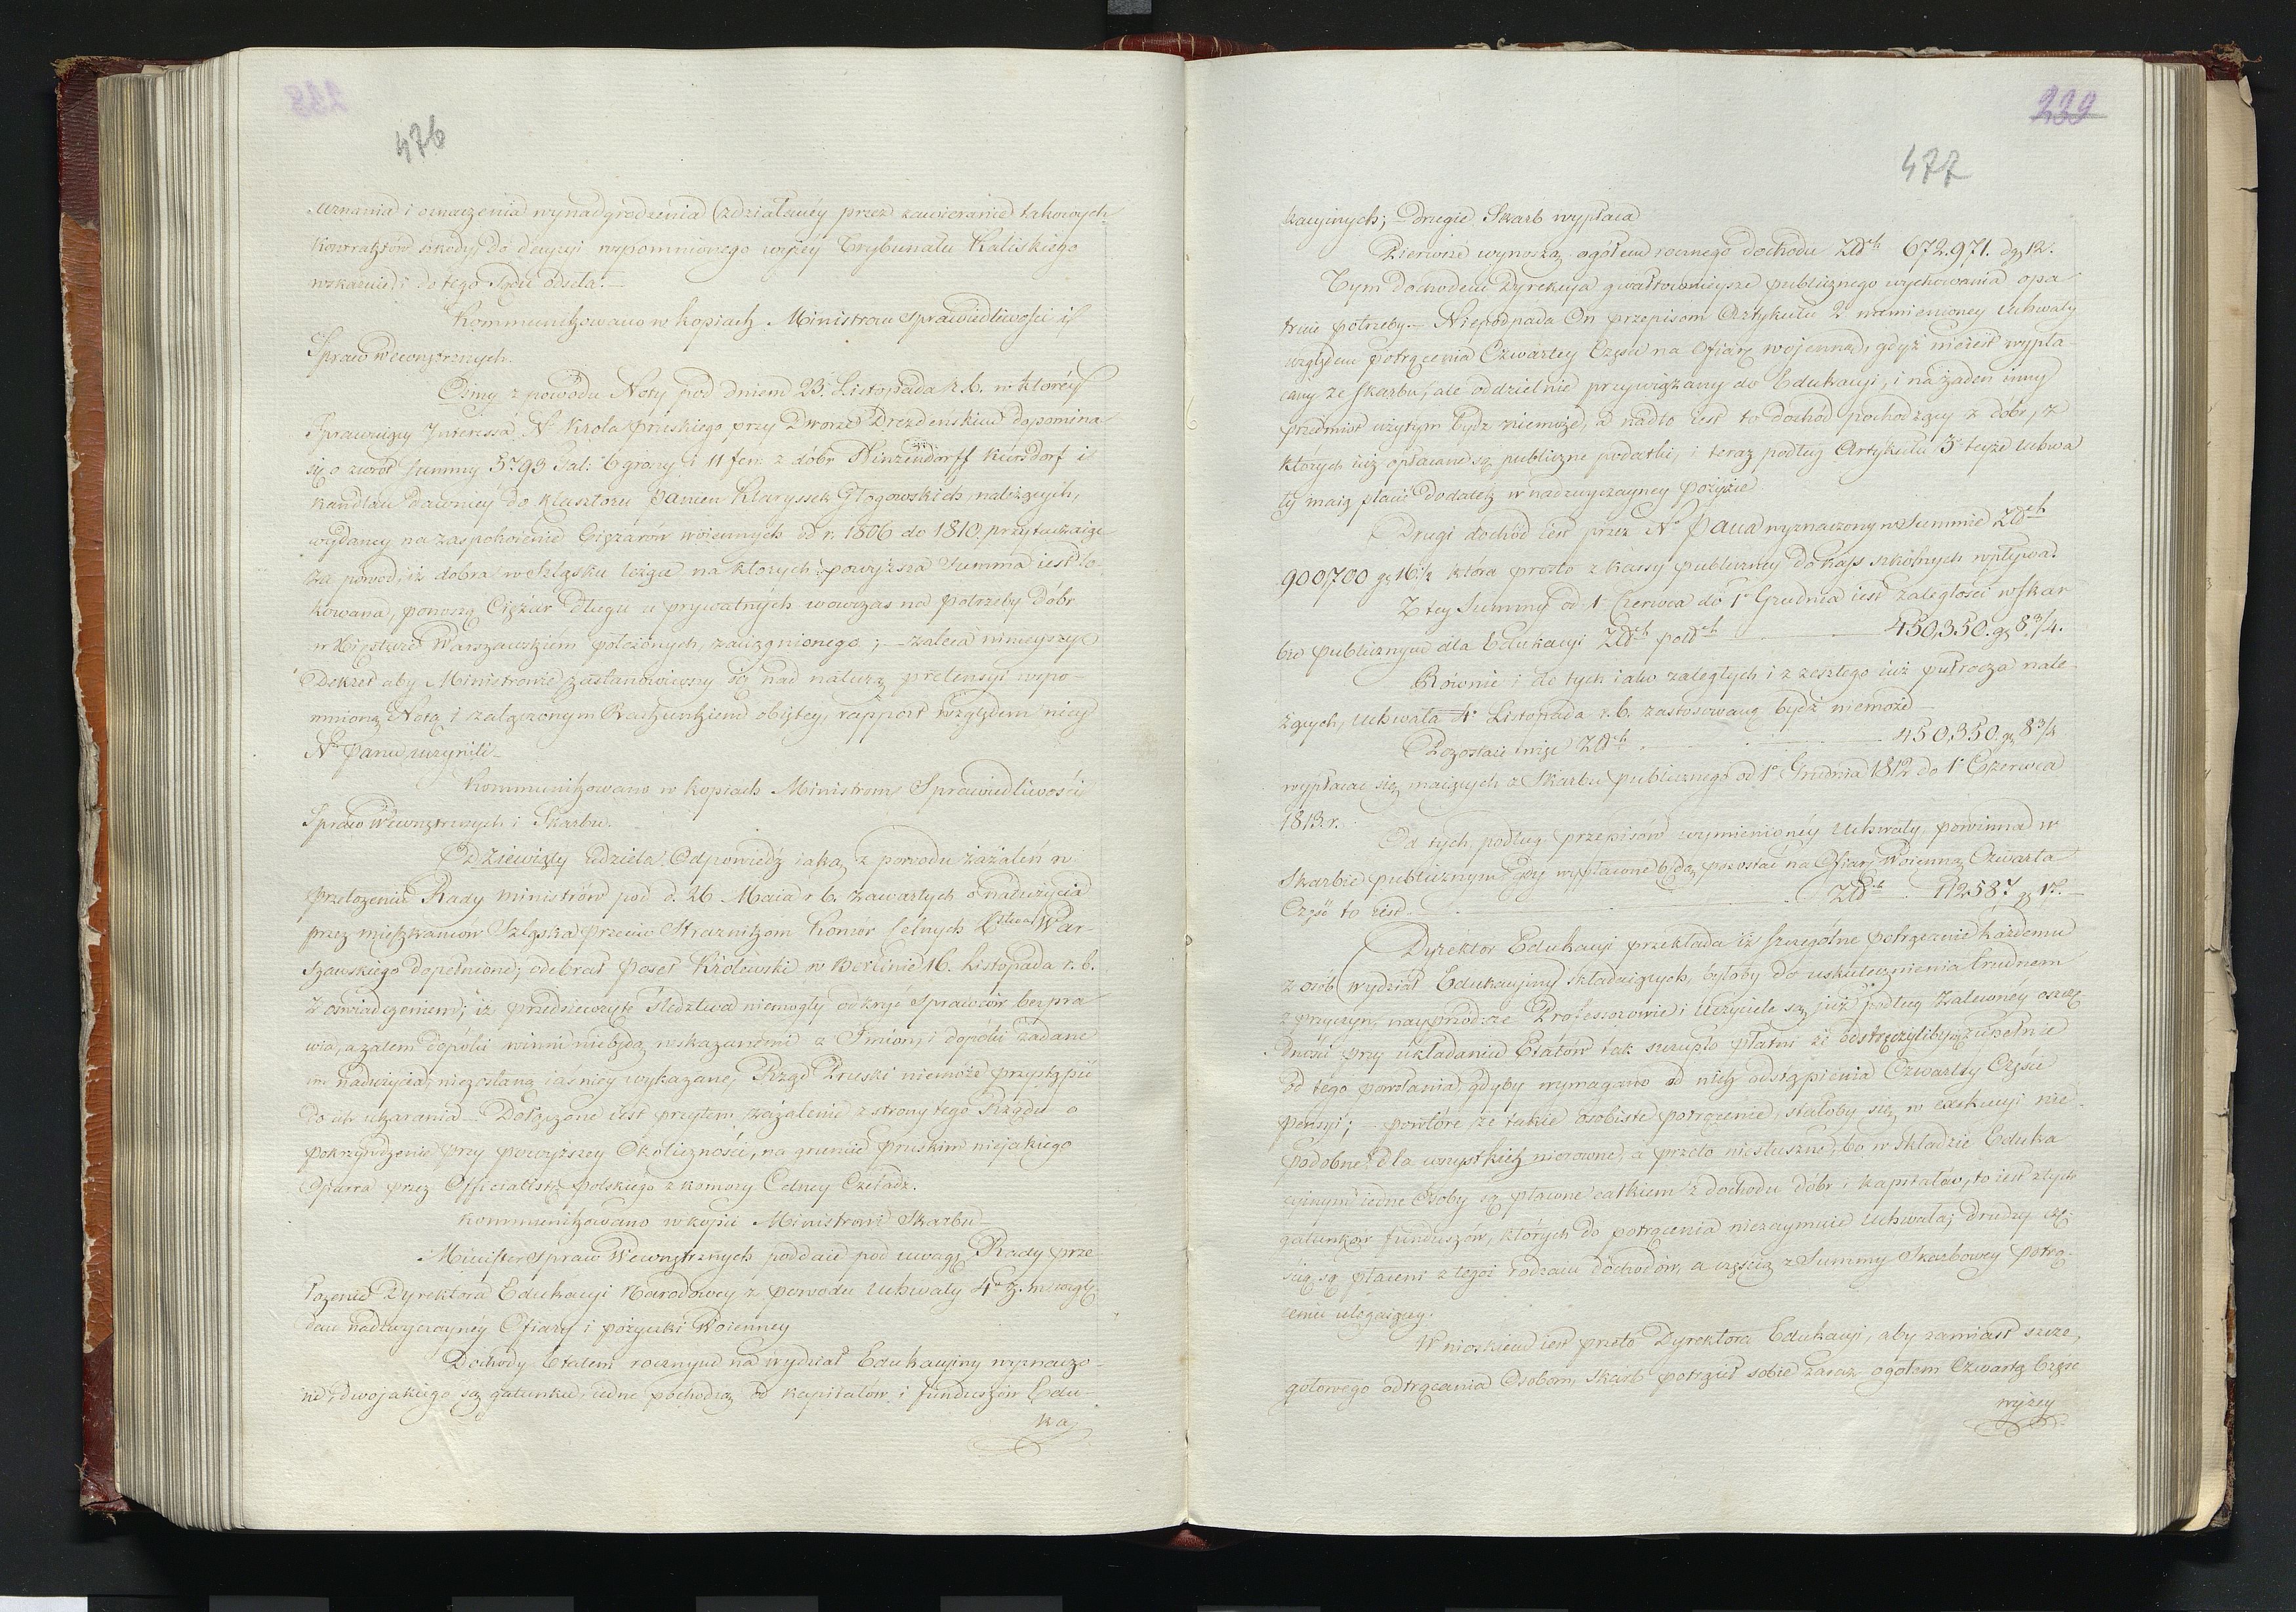 476
uznania i oznaczenia wynadgrodzenia (zdziałanéy przez zawieranie takowych
kontraktów szkody) do decyzyi wspomnionego wyżéy Trybunału Kaliskiego
wskazuie i do tego Sądu odseła.—
Kommunikowano w kopiach Ministrom Sprawiedliwości i
Spraw Wewnętrznych.
Osmy z powodu Noty pod dniem 23. Listopada r. b. w któréy
Sprawuiący Interessa N. Krola pruskiego przy Dworze Drezdeńskim dopomina
się o zwrot Summy 5793 Tal: 6 groszy i 11 fen: z dóbr Hinzendorff Kursdorf i
Kandlau dawniéy do klasztoru Panien Klaryssek Głogowskich, należących,
wydaney na zaspokoienie Ciężarów woiennych od r. 1806 do 1810. przytaczaiąc
za powod, iż dobra w Szląsku leżące na których powyższa Summa iest lo-
kowana, ponoszą Ciężar Długu u prywatnych wowczas na potrzeby dóbr
w Xięstwie Warszawskiem położonych, zaciągnionego; — zaleca ninieyszy
Dekret aby Ministrowie zastanowiwszy się nad naturą pretensyi wspo-
mnioną Notą i załączonym Rachunkiem obiętey, rapport względem niey
N. Panu uczynili.—
Kommunikowano w kopiach Ministrom Sprawiedliwości
Spraw Wewnętrznych i Skarbu.
Dziewiąty udziela Odpowiedź iaką z powodu zażaleń w
przełożeniu Rady Ministrów pod d. 26 Maia r. b. zawartych o nadużycia
przez mieszkańców Szląska przeciw Strażnikom Komor Celnych Xstwa War-
szawskiego dopełnione, odebrał Poseł Królewski w Berlinie 16. Listopada r. b.
z oświadczeniem, iż przedsięwzięte śledztwa niemogły odkryć Sprawców bezpra-
wia, a zatem dopóki winni niebędą wskazanemi z Imion, i dopóki zadane
im nadużycia, niezostaną iaśniey wykazane, Rząd Pruski niemoże przystąpić
do ich ukarania.— Dołączone iest przytem zażalenie z strony tego Rządu o
pokrzywdzenie przy powyższey Okoliczności, na gruncie pruskim niejakiego
Oparra przez Officialistę polskiego z komory Celney Czeladz.
Kommunikowano w kopii Ministrowi Skarbu—
Minister Spraw Wewnętrznych poddaie pod uwagę Rady prze-
łożenie Dyrektora Edukacyi Narodowey z powodu Uchwały 4º z. m. wzglę-
dem nadzwyczayney Ofiary i pożyczki Woienney
Dochody Etatem rocznym na wydział Edukacyiny wyznaczo-
ne, dwojakiego są gatunku, iedne pochodzą od kapitałów i funduszów Edu-
ka
239
477
kacyinych; drugie Skarb wypłaca
Pierwsze wynoszą ogółem rocznego dochodu Złch 672.971. gr 12.
Tym dochodem Dyrekcya gwałtownieysze publicznego wychowania opa-
truie potrzeby.— Niepodpada On przepisom Artykułu 2 namienioney Uchwały
względem potrącenia Czwartey Części na Ofiarę wojenną, gdyż nieiest wypła-
cany ze Skarbu, ale oddzielnie przywiązany do Edukacyi, i na żaden inny
przedmiot użytym bydz niemoże, a nadto iest to dochód pochodzący z dóbr, z
których iuż opłacane są publiczne podatki, i teraz podług Artykułu 5 teyże Uchwa-
ły maią płacić dodatek w nadzwyczayney pożyczce
Drugi dochód iest przez N. Pana wyznaczony w Summie Złch
900,700 gr 16½ która prosto z kassy publiczney do kass szkólnych wpływa.
Z tey Summy od 1 Czerwca do 1º Grudnia iest zaległości w Skar-
bie publicznym dla Edukacyi Złch polch 450,350. gr 8¾.
Równie i do tych iako zaległych i z zeszłego iuż półrocza nale-
żących, Uchwała 4 Listopada r. b. zastosowaną bydź niemoże—
Pozostaie więc Złch 450,350. gr 8¾
wypłacać się maiących z Skarbu publicznego od 1º Grudnia 1812 do 1º Czerwca
1813. r.
Od tych, podług przepisów wymienionéy Uchwały, powinna w
Skarbie publicznym gdy wypłacone będą pozostać na Ofiarę Woienną Czwarta
Część to iest Złch 112587 gr 17.
Dyrektor Edukacyi przekłada iż szczególne potrącenie każdemu
z osób wydział Edukacyiny składaiących, byłoby do uskutecznienia trudnem
z przyczyn, nayprzod: że Professorowie i Uczyciele są już podług zalewnéy oszczę-
dności przy układaniu Etatów tak szczupło płatni że odstręczyliby się zupełnie
od tego powołania gdyby wymagano od nich odstąpienia Czwartey Części
pensyi; — powtóre że takie osobiste potrącenie, stałoby się w exekucyi nie-
podobne, dla wszystkich nierowne, a przeto niesłuszne, bo w składzie Eduka-
cyinym iedne Osoby są płatne całkiem z dochodu dóbr i kapitałów, to iest z tych
gatunków funduszów, których do potrącenia niezaymuie Uchwała; drudzy czę-
ścią są płaceni z tegoż rodzaiu dochodów, a częścią z Summy Skarbowey potrą-
ceniu ulegaiącey.
Wnioskiem iest przeto Dyrektora Edukacyi, aby zamiast szcze-
gółowego odtrącania Osobom, Skarb potrącił sobie zaraz ogółem Czwartą Część
wyżey